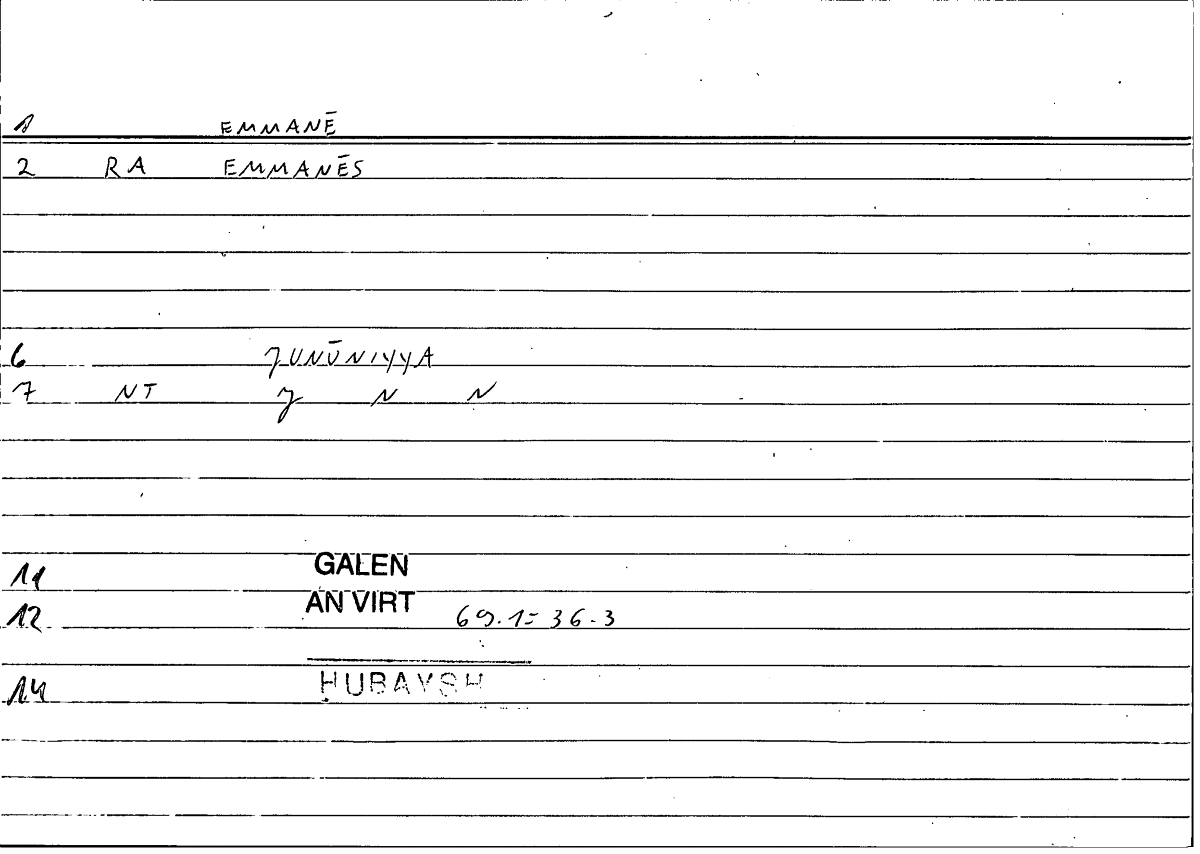 1 EMMANĒ
2 RA EMMANĒS
6 JUNŪNIYYA
7 NT J N N
11 GALEN
12 AN VIRT 69.1= 36.3
14 HUBAYSH